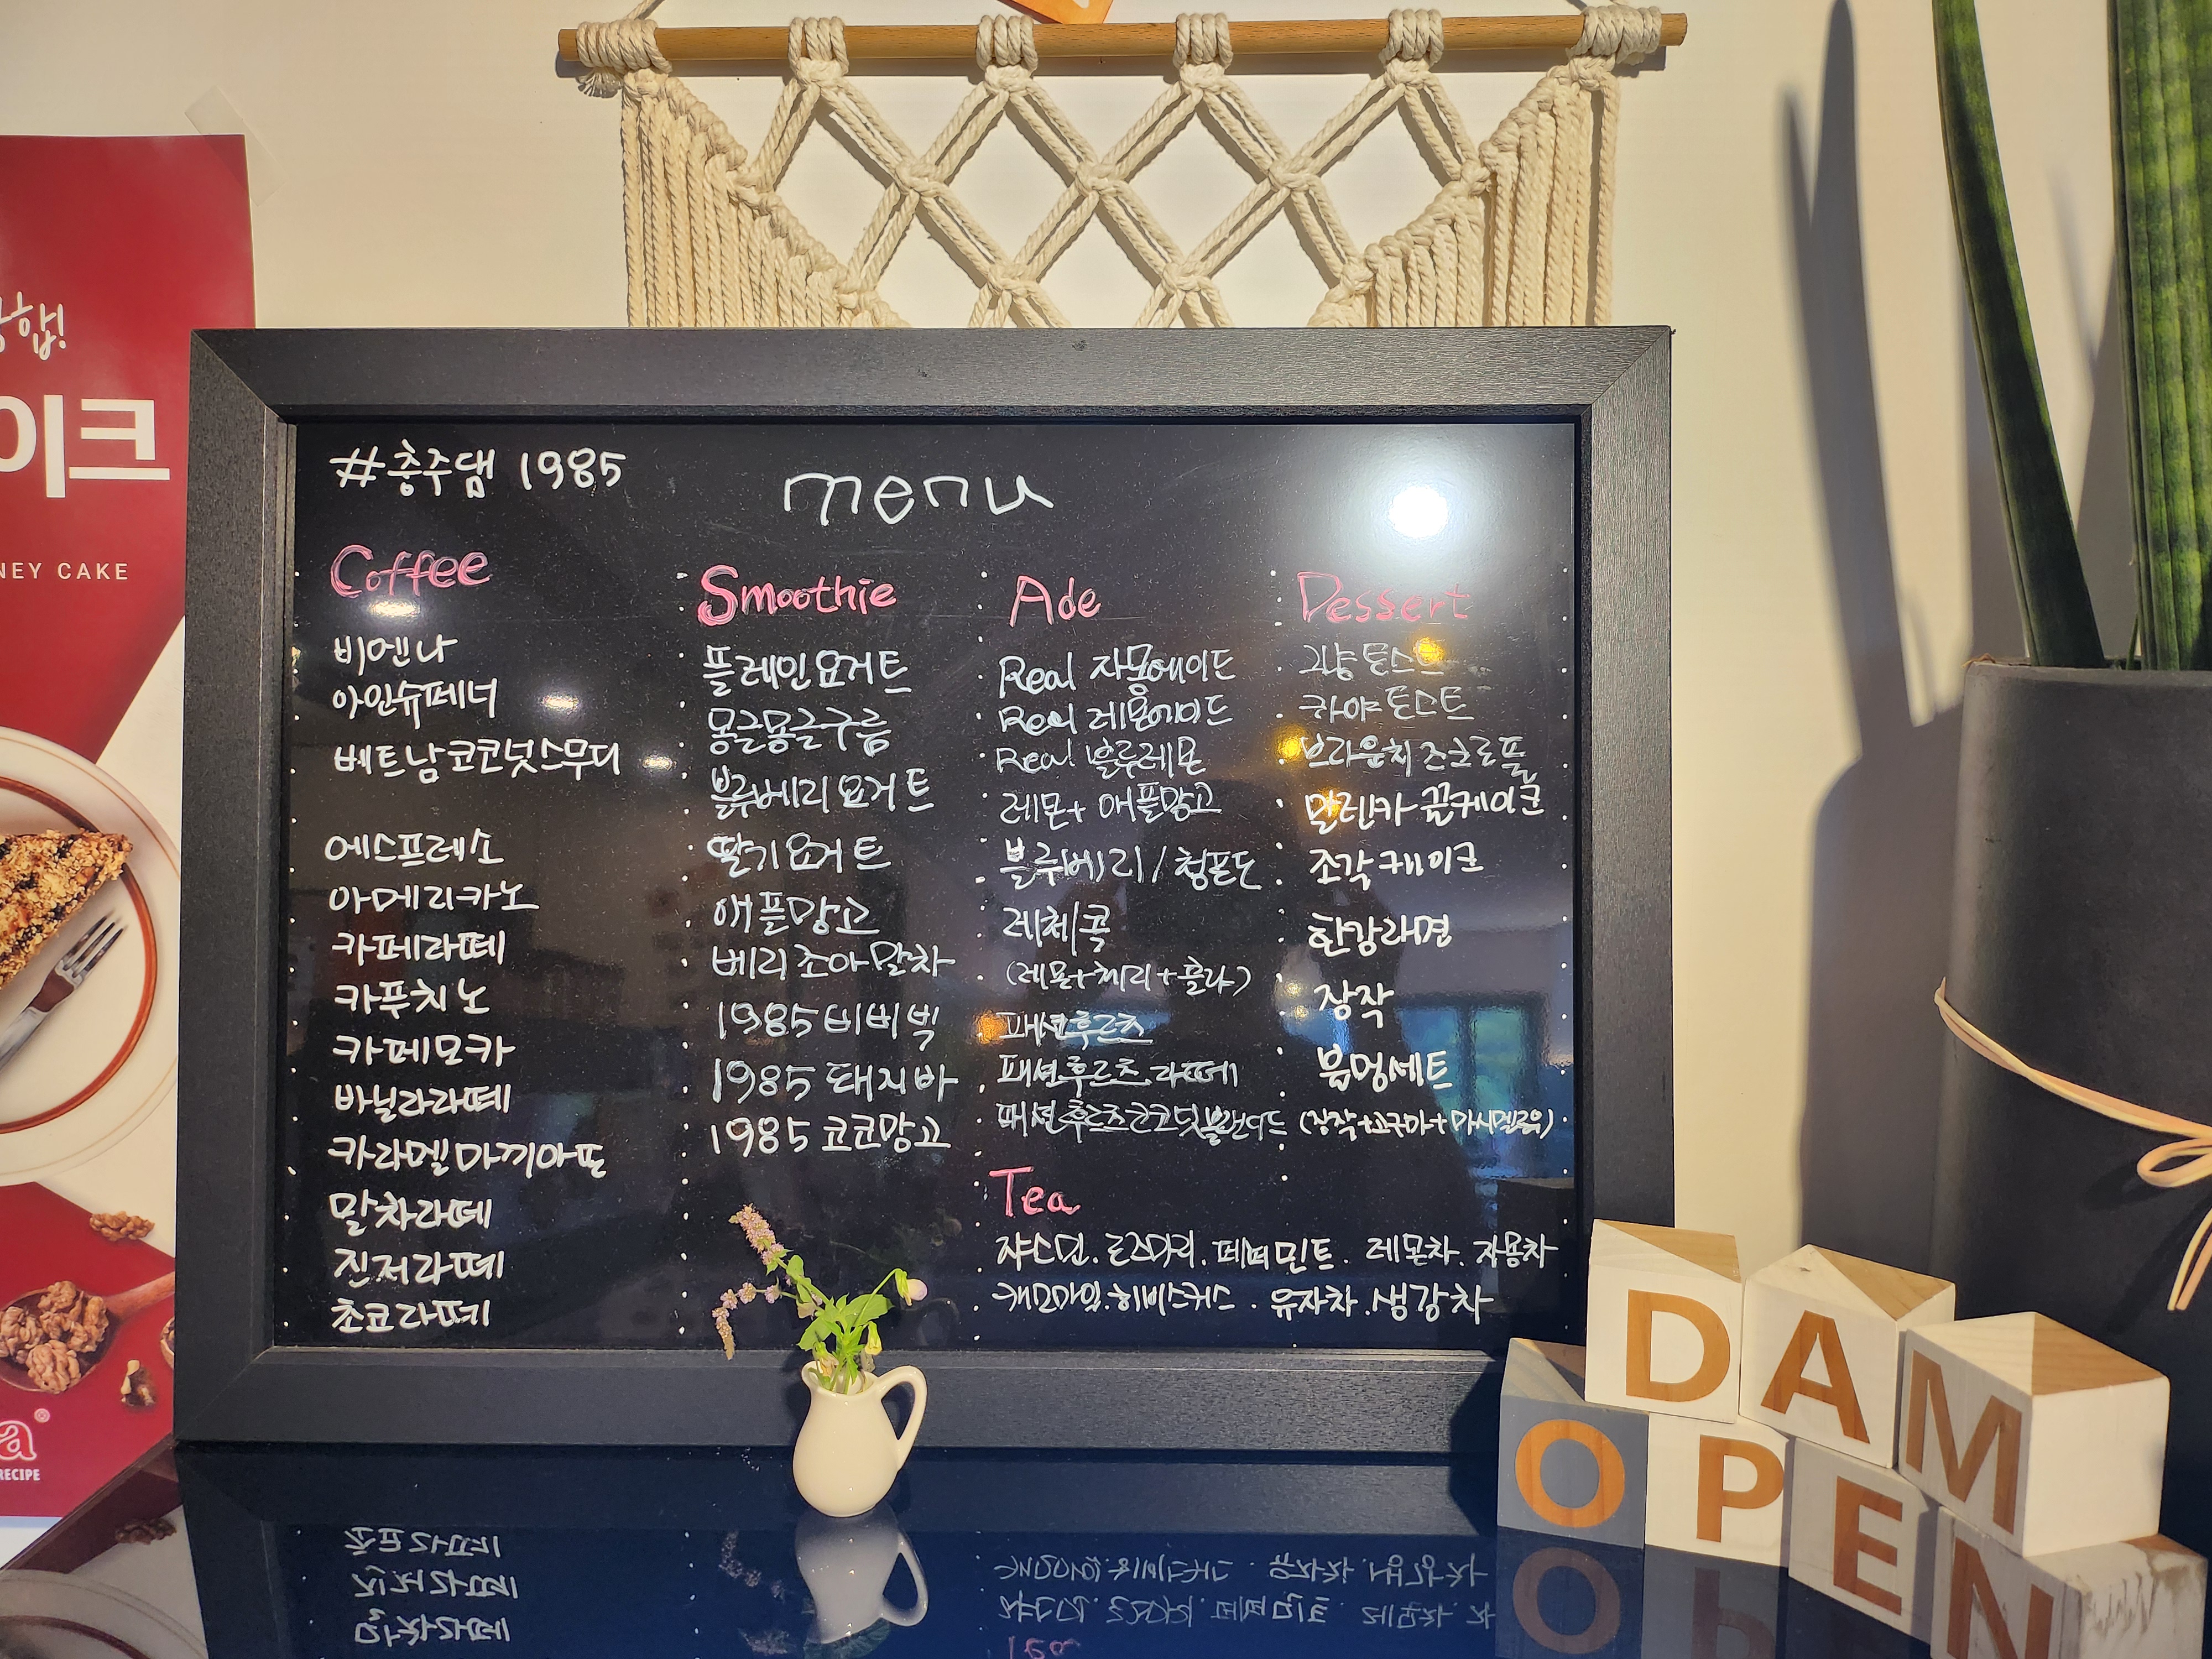 합!
이크
NEY CAKE
RECIPE
#충주댐 1985
menu
Coffee
비엔나
아인슈페너
베트남코코넛스무디
에스프레소
아메리카노
카페라떼
카푸치노
카페모카
바닐라라떼
카라멜마끼아또
말차라떼
진저라떼
초코라떼
Smoothie
플레인요거트
몽글몽글구름
블루베리요거트
딸기요거트
애플망고
베리초아말차
1985 비비빅
1985 돼지바
1985 코코망고
Ade
Real 자몽에이드
Real 레몬에이드
Real 블루레몬
레몬+ 애플망고
블루베리/청포도
레체콕
(레몬+체리+콜라)
패션후르츠
패션후르츠라떼
패션후르츠코코넛블랜디드
Dessert
그냥토스트
카야토스트
브라운치즈크로플
말렌카 꿀케이크
조각케이크
한강라면
장작
불멍세트
(장작+고구마+마시멜로우)
Tea
쟈스민.로즈마리.페퍼민트.레몬차.자몽차
캐모마일.히비스커스.유자차.생강차
DAM
OPEN